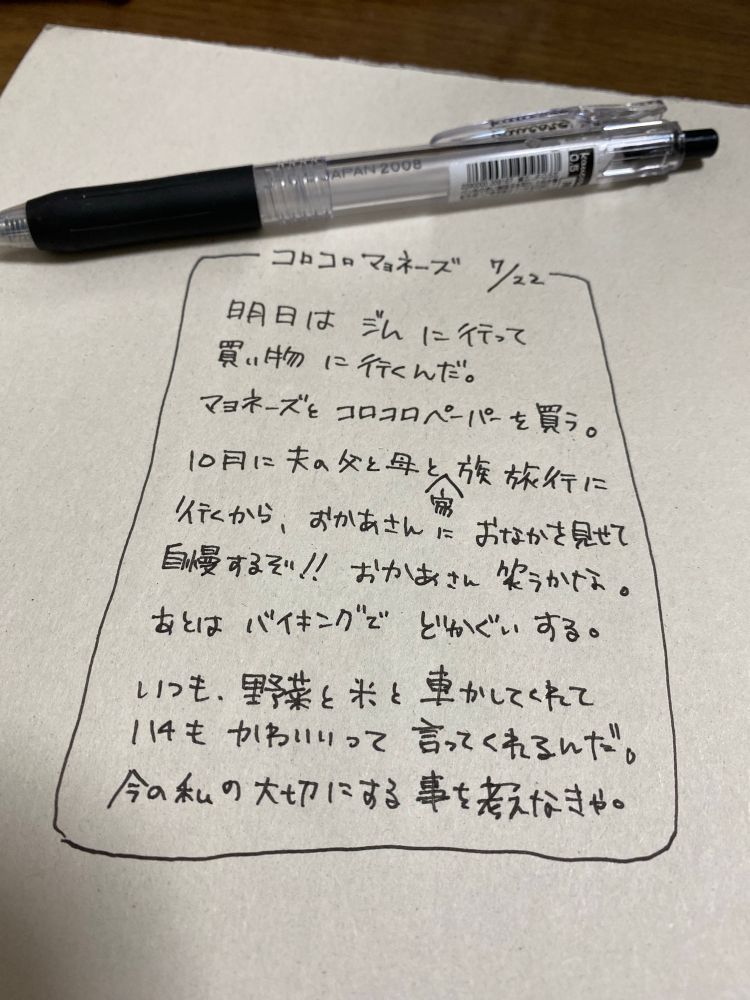 JAPAN 2008
0.5
コロコロマヨネーズ 7/22
明日は ジム に行って
買い物 に行くんだ。
マヨネーズと コロコロペーパーを買う。
10月に 夫の父と母と家族 旅行に
行くから、おかあさんに おなかを見せて
自慢するぞ!! おかあさん 笑うかな。
あとは バイキングで どかぐい する。
いつも、野菜と米と 車かしてくれて
ハチも かわいいって 言ってくれるんだ。
今の私の大切にする事を考えなきゃ。